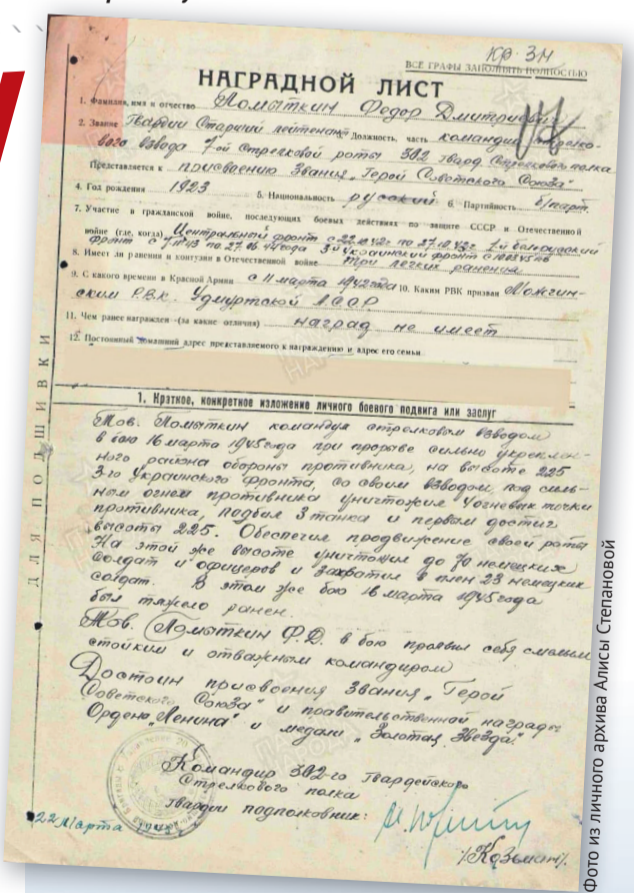 Кр-3М
ВСЕ ГРАФЫ ЗАПОЛНЯТЬ ПОЛНОСТЬЮ
НАГРАДНОЙ ЛИСТ
1. Фамилия, имя и отчество Помыткин Федор Дмитриевич
2. Звание Гвардии Старший лейтенант Должность, часть командир стрелко-
вого взвода 7-ой Стрелковой роты 302 гвард Стрелкового полка
Представляется к присвоению Звания „Герой Советского Союза"
4. Год рождения 1923 5. Национальность русский 6. Партийность б/парт.
7. Участие в гражданской войне, последующих боевых действиях по защите СССР и Отечественной
войне (где, когда) Центральный фронт с 22.10.42г по 27.10.43г 1-й белорусский
фронт с 7.11.43 по 27.06.44 года 3-й Украинский фронт с
8. Имеет ли ранения и контузии в Отечественной войне три легких ранения
9. С какого времени в Красной Армии с 11 марта 1942 года 10. Каким РВК призван Можгин-
ским Р.В.К. Удмуртской АССР
11. Чем ранее награжден (за какие отличия) наград не имеет
12. Постоянный домашний адрес представляемого к награждению и адрес его семьи
ДЛЯ ПОДШИВКИ
1. Краткое, конкретное изложение личного боевого подвига или заслуг
Тов. Помыткин командуя стрелковым взводом
в бою 16 марта 1945 года при прорыве сильно укреплен-
ного района обороны противника, на высоте 225
3-го Украинского фронта, со своим взводом, под силь-
ным огнем противника уничтожил 4 огневые точки
противника, подбил 3 танка и первым достиг
высоты 225. Обеспечил продвижение своей роты
На этой же высоте уничтожил до 70 немецких
солдат и офицеров и захватил в плен 23 немецких
солдат. В этом же бою 16 марта 1945 года
был тяжело ранен.
Тов. Помыткин Ф.Д. в бою проявил себя смелым
стойким и отважным командиром
Достоин присвоения Звания „Герой
Советского Союза" и правительственной награды
Ордена „Ленина" и медали „Золотая Звезда".
Командир 302-го Гвардейского
Стрелкового полка
Гвардии подполковник:
/Козьмин/.
22 Марта
Фото из личного архива Алисы Степановой